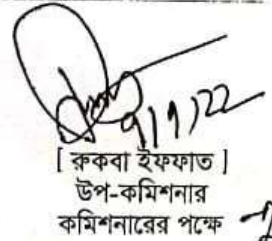 9/1/22
[ রুকবা ইফফাত ]
উপ-কমিশনার
কমিশনারের পক্ষে